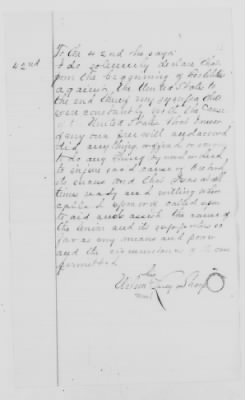 To the 42nd he says
42nd
I do solemnly declare that
from the beginning of hostilities
against the United States to
the end thereof my sympathies
were constantly with the cause
of the United States that I never
of my own free will and accord
did anything or
to do any thing by word or deed
to injure said cause or
its and that I was at all
times ready and willing when
called upon
to aid and assist the cause of
the Union and its supporters so
far as my means and power
and the circumstances of the case
permitted
his
mark